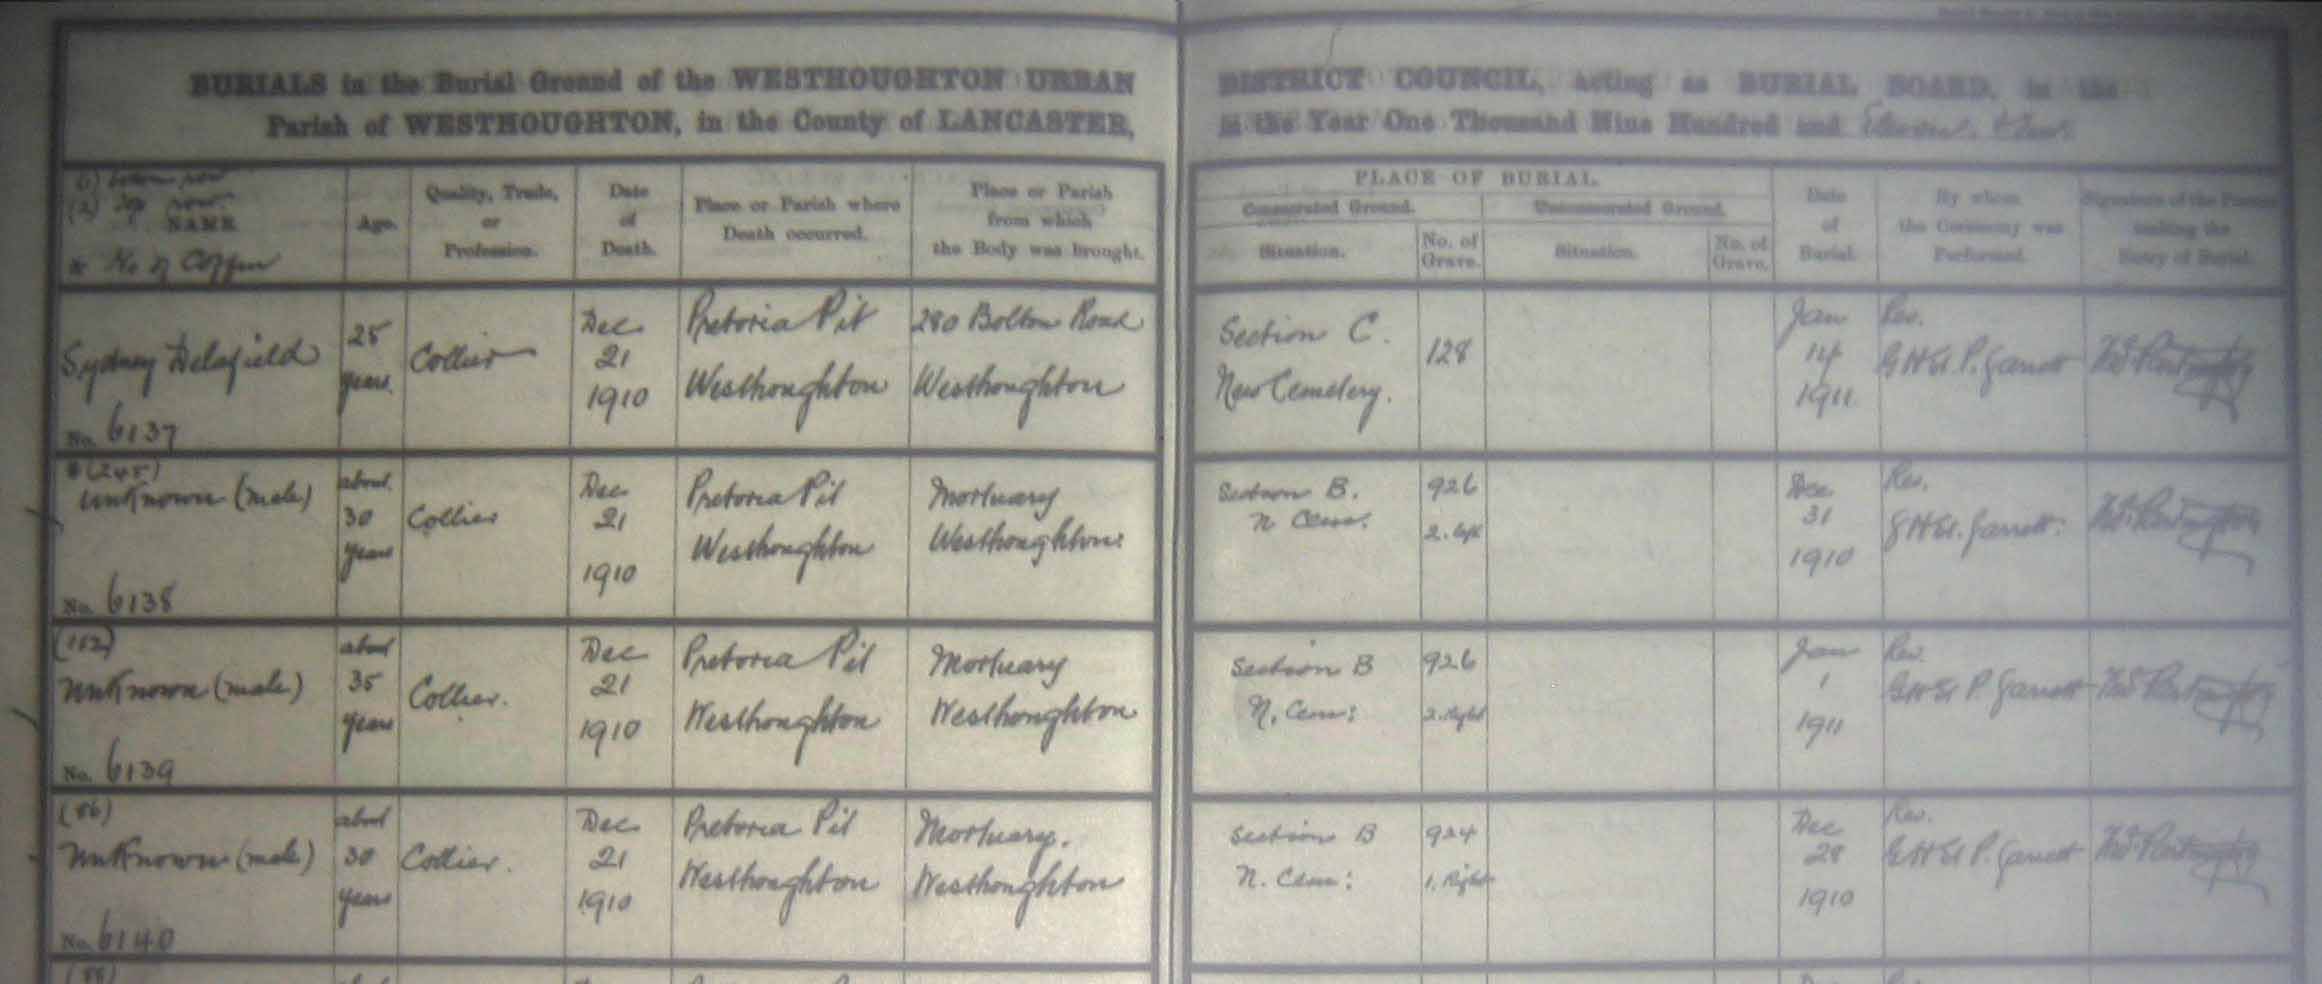 BURIALS in the Burial Ground of the WESTHOUGHTON URBAN DISTRICT COUNCIL, acting as BURIAL BOARD, in the
Parish of WESTHOUGHTON, in the County of LANCASTER, in the Year One Thousand Nine Hundred and
(1) bottom row
(2) Top row
NAME
* No of Coffin
Age.
Quality, Trade,
or
Profession.
Date
of
Death.
Place or Parish where
Death occurred.
Place or Parish
from which
the Body was brought.
PLACE OF BURIAL.
Consecrated Ground.
Unconsecrated Ground.
Situation.
No. of
Grave.
Situation.
No. of
Grave.
Date
of
Burial.
By whom
the Ceremony was
Performed.
Signature of the Person
making the
Entry of Burial.
Sydney Delafield
No. 6137
25
years
Collier
Dec
21
1910
Pretoria Pit
Westhoughton
280 Bolton Road
Westhoughton
Section C.
New Cemetery.
128
Jan
14
1911
Rev.
G H St P. Garrett
*(245)
Unknown (male)
No. 6138
about
30
years
Collier
Dec
21
1910
Pretoria Pit
Westhoughton
Mortuary
Westhoughton
Section B.
N Cem:
926
2. left
Dec
31
1910
Rev.
G H St. Garrett.
(162)
Unknown (male)
No. 6139
about
35
years
Collier.
Dec
21
1910
Pretoria Pit
Westhoughton
Mortuary
Westhoughton
Section B
N. Cem:
926
2. Right
Jan
1
1911
Rev.
G H St P. Garrett
(86)
Unknown (male)
No. 6140
about
30
years
Collier.
Dec
21
1910
Pretoria Pit
Westhoughton
Mortuary.
Westhoughton
Section B
N. Cem:
924
1. Right
Dec
28
1910
Rev.
G H St P. Garrett
(88)